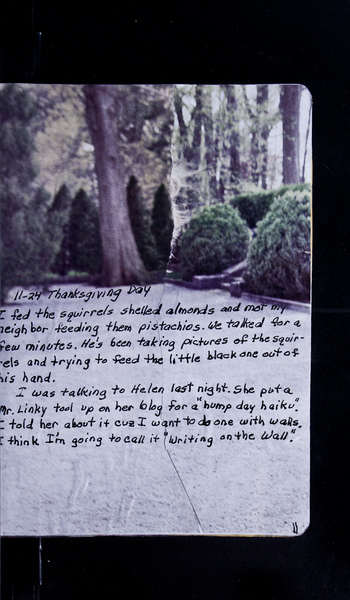 11-24 Thanksgiving Day
I fed the squirrels shelled almonds and met my
neighbor feeding them pistachios. We talked for a
few minutes. He's been taking pictures of the squir-
rels and trying to feed the little black one out of
his hand.
I was talking to Helen last night. She put a
Mr. Linky tool up on her blog for a "hump day haiku".
I told her about it cuz I want to do one with walls.
I think I'm going to call it "Writing on the Wall".
11